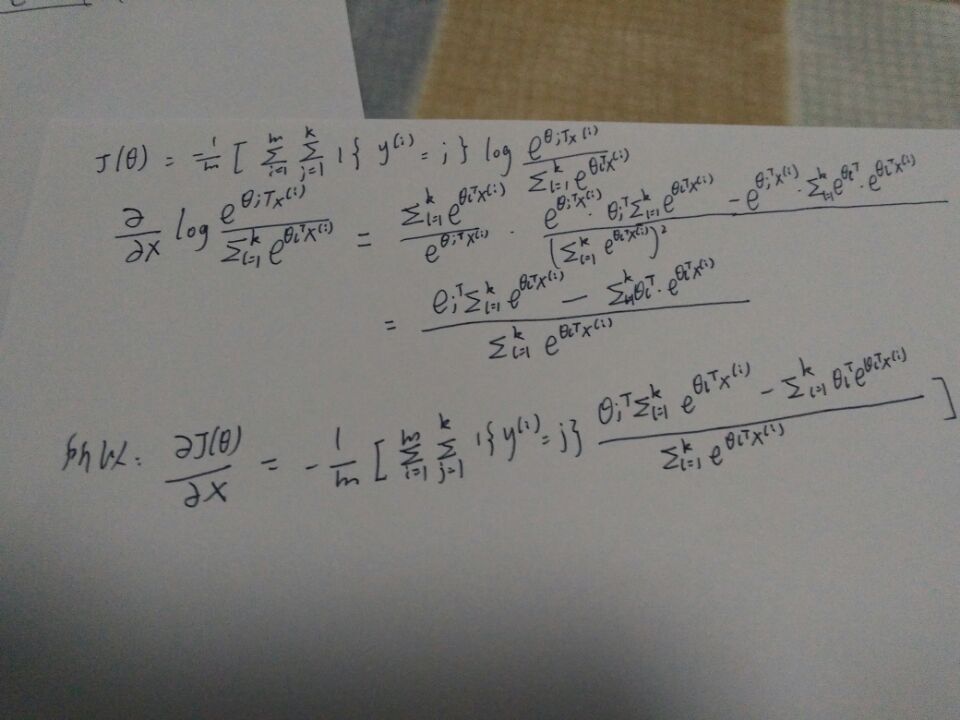 J(θ) = -1/m [ Σ_{i=1}^{m} Σ_{j=1}^{k} 1{ y^{(i)} = j } log e^{θ_j^T x^{(i)}} / Σ_{l=1}^{k} e^{θ_l^T x^{(i)}}
∂/∂x log e^{θ_j^T x^{(i)}} / Σ_{l=1}^{k} e^{θ_l^T x^{(i)}} = Σ_{l=1}^{k} e^{θ_l^T x^{(i)}} / e^{θ_j^T x^{(i)}} · (e^{θ_j^T x^{(i)}} · θ_j^T Σ_{l=1}^{k} e^{θ_l^T x^{(i)}} - e^{θ_j^T x^{(i)}} · Σ_{l=1}^{k} e^{θ_l^T} · e^{θ_l^T x^{(i)}}) / (Σ_{l=1}^{k} e^{θ_l^T x^{(i)}})^2
= (e_j^T Σ_{l=1}^{k} e^{θ_l^T x^{(i)}} - Σ_{l=1}^{k} θ_l^T · e^{θ_l^T x^{(i)}}) / Σ_{l=1}^{k} e^{θ_l^T x^{(i)}}
所以: ∂J(θ)/∂x = -1/m [ Σ_{i=1}^{m} Σ_{j=1}^{k} 1{ y^{(i)} = j } (θ_j^T Σ_{l=1}^{k} e^{θ_l^T x^{(i)}} - Σ_{l=1}^{k} θ_l^T e^{θ_l^T x^{(i)}}) / Σ_{l=1}^{k} e^{θ_l^T x^{(i)}} ]